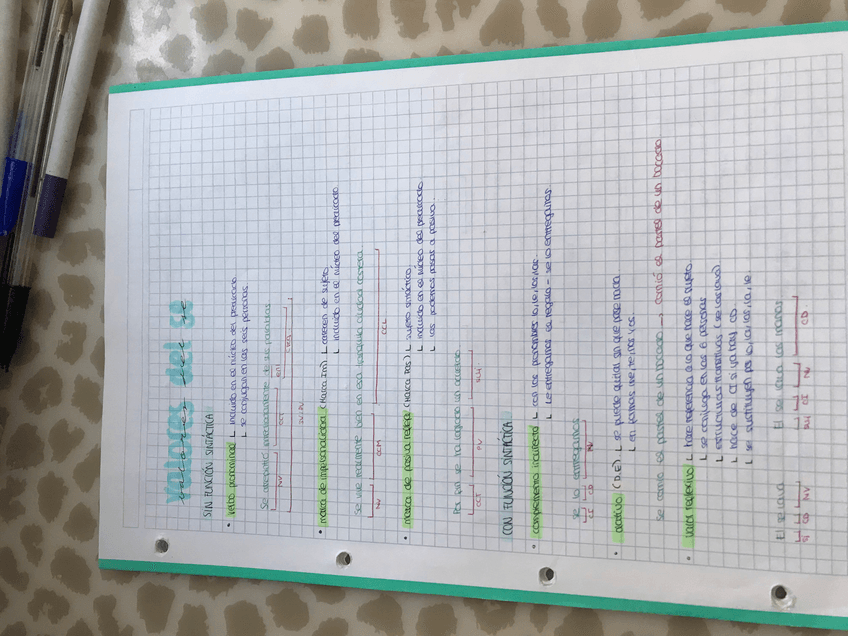 Valores del se
SIN FUNCIÓN SINTÁCTICA
• verbo pronominal ↳ incluido en el núcleo del predicado
↳ se conjuga en las seis personas.
Se arrepintió de sus palabras
NV CCT Enl
SPV
• marca de impersonalidad (Marca Im) ↳ carecen de sujeto
↳ incluido en el núcleo del predicado
Se vive realmente bien en esa pequeña ciudad costera
NV CCM CCL
• marca de pasiva refleja (Marca Pas) ↳ sujeto sintáctico
↳ incluido en el núcleo del predicado
↳ las podemos pasar a pasiva.
Por fin se ha logrado un acuerdo
CCT NV SUJ
CON FUNCIÓN SINTÁCTICA
• complemento indirecto ↳ con los pronombres lo, la, los, las.
↳ Le entregaras el regalo - se lo entregaras.
Se lo entregaras
CI CD NV
• dativo (D.E) ↳ se puede quitar sin que pase nada
↳ en formas me, te, nos, os
Se comió el pastel de un bocado → comió el pastel de un bocado
• valor reflexivo ↳ hace referencia a lo que hace el sujeto
↳ se conjuga en las 6 personas
↳ estructuras transitivas (se las lavó).
↳ hace de CI si ya hay CD
↳ se sustituyen por lo, la, los, las, le
Él se lava Él se lava las manos
SUJ CD NV SUJ CI NV CD